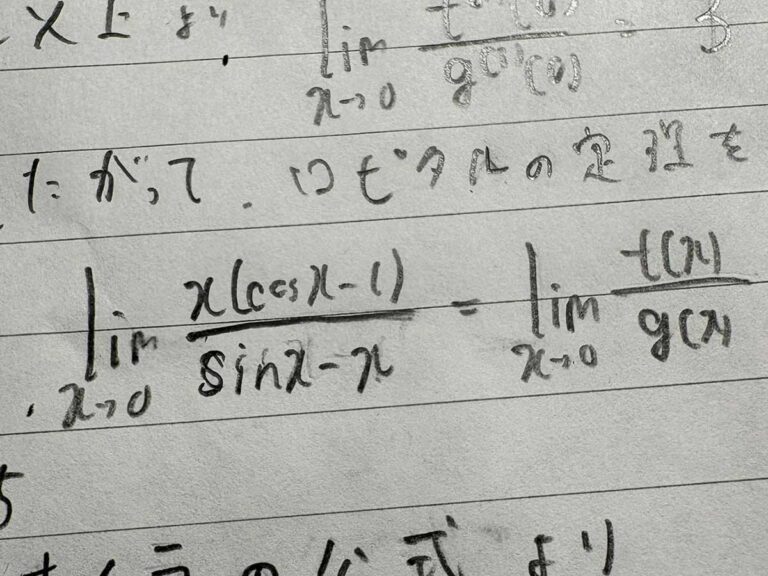 以上より lim x→0 f'''(0)/g'''(0) = 3
たがって. ロピタルの定理を
lim x→0 x(cosx-1)/sinx-x = lim x→0 f(x)/g(x)
の公式より